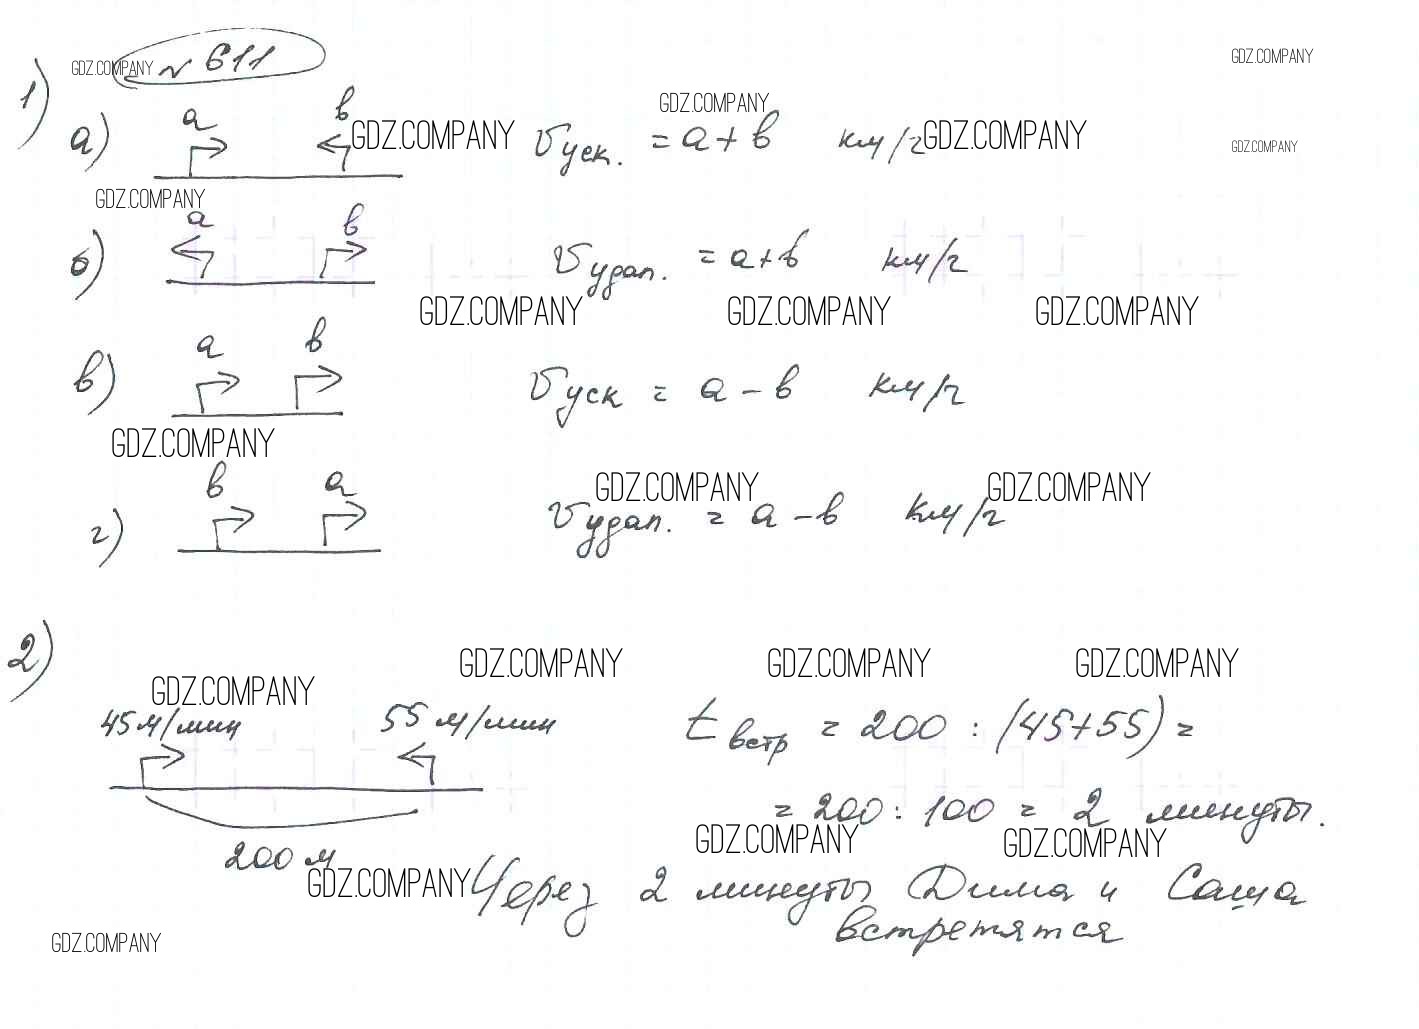 GDZ.COMPANY № 611 GDZ.COMPANY
1)
а) a в GDZ.COMPANY GDZ.COMPANY Vуск. = a + в км/ч GDZ.COMPANY GDZ.COMPANY
GDZ.COMPANY
б) a в Vудал. = a + в км/ч
GDZ.COMPANY GDZ.COMPANY GDZ.COMPANY
в) a в Vуск = a - в км/ч
GDZ.COMPANY
г) в a GDZ.COMPANY Vудал. = a - в км/ч GDZ.COMPANY
2)
GDZ.COMPANY GDZ.COMPANY GDZ.COMPANY GDZ.COMPANY
45 м/мин 55 м/мин t встр = 200 : (45+55) =
= 200 : 100 = 2 минуты.
GDZ.COMPANY GDZ.COMPANY
200 м GDZ.COMPANY Через 2 минуты Дима и Саша
встретятся
GDZ.COMPANY